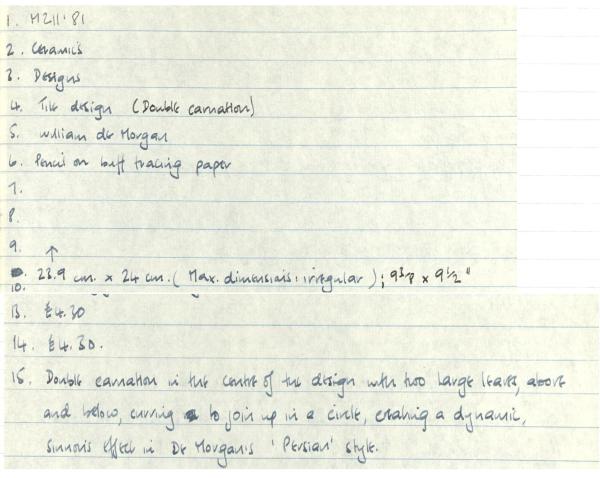 1. M211'81
2. Ceramics
3. Designs
4. Tile design (Double carnation)
5. William de Morgan
6. Pencil on buff tracing paper
7.
8.
9.
↑
10. 23.9 cm. x 24 cm. (Max. dimensions: irregular); 9 3/8 x 9 1/2"
13. £4.30
14. £4.30.
15. Double carnation in the centre of the design with two large leaves, above
and below, curving to join up in a circle, creating a dynamic,
sinuous effect in De Morgan's 'Persian' style.